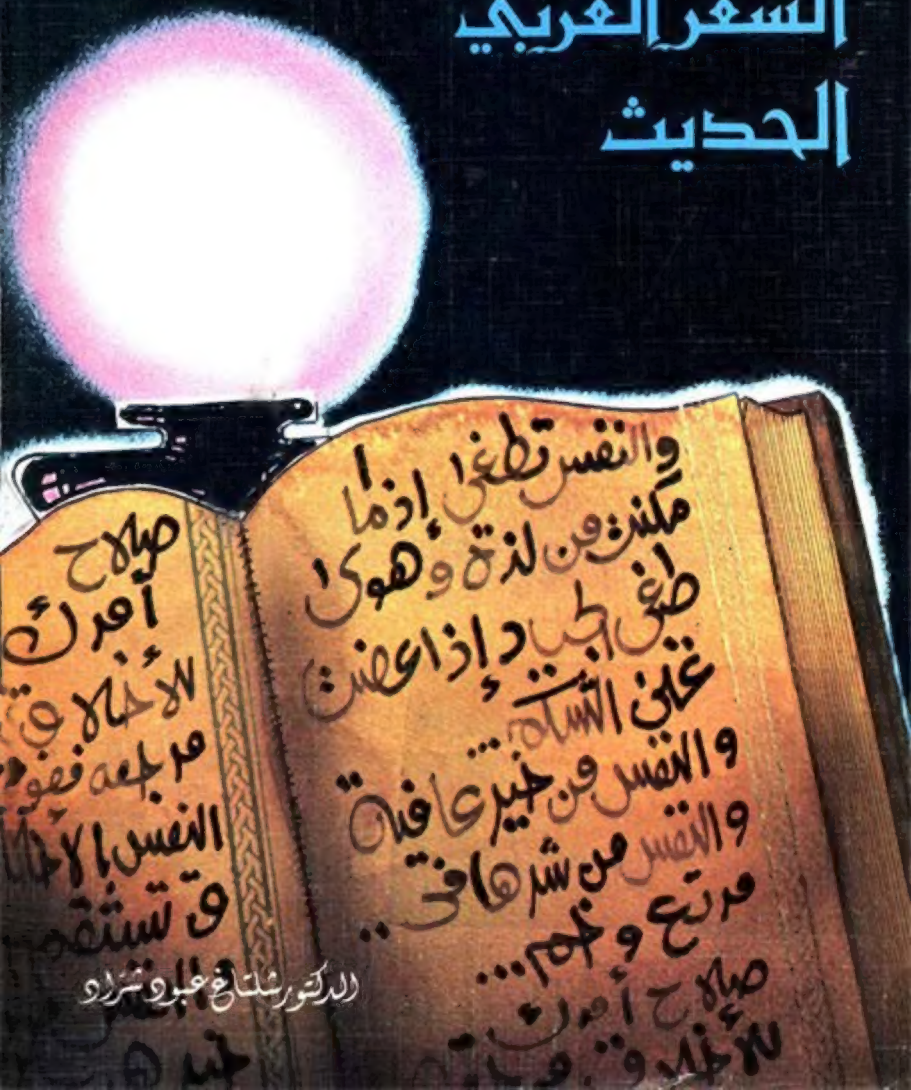 الشعر العربي
الحديث
والنفس تطغى إذما
مكنت من لذة وهوى
طغى الجياد إذا عضت
على الشكم...
والنفس من خير عافية
والنفس من شرها في..
مرتع وخم...
صلاح أمرك
للأخلاق مرجعه
صلاح
أمرك
للأخلاق
مرجعه فقوم
النفس بالأخلا
ق تستقم
والنفس
خير
الدكتور شلتاغ عبود شراد